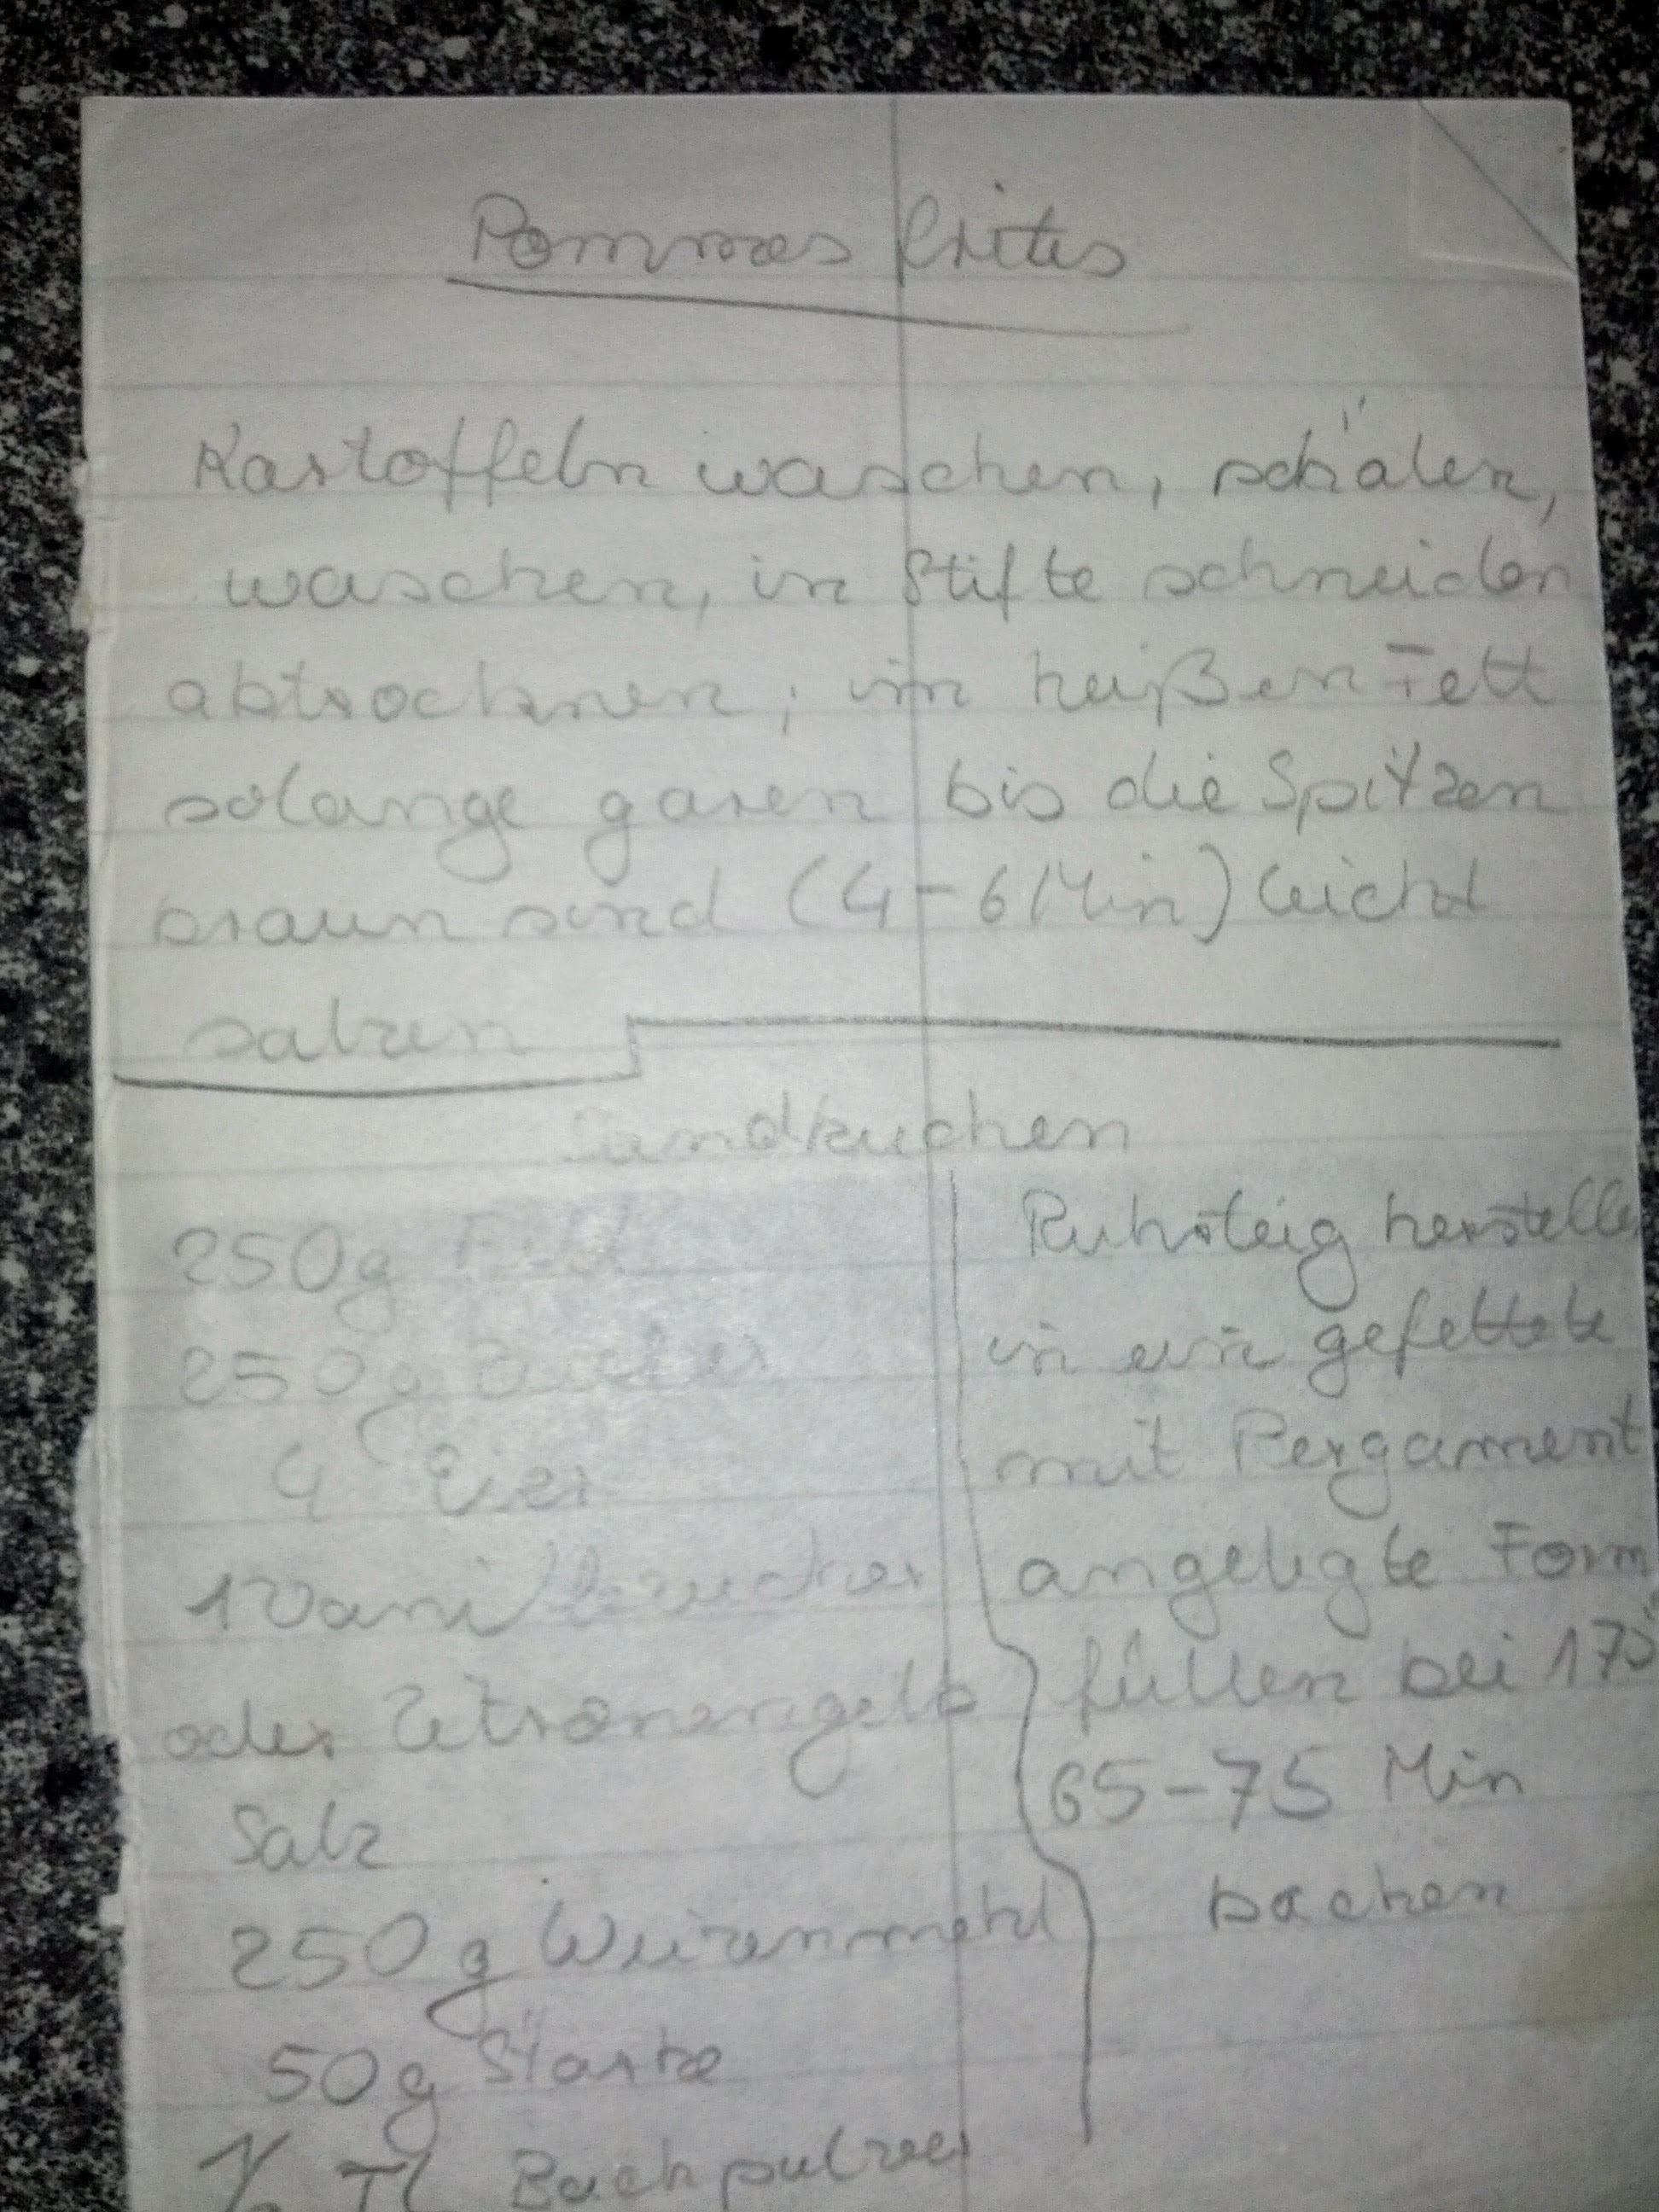 Pommes frites
Kartoffeln waschen, schälen,
waschen, in Stifte schneiden
abtrocknen; im heißen Fett
solange garen bis die Spitzen
braun sind (4-6 Min) leicht
salzen
Sandkuchen
250g Fett
250g Zucker
4 Eier
1 Vanillezucker
oder Zitronengelb
Salz
250g Weizenmehl
50g Stärke
1/2 Tl Backpulver
Ruhrteig herstelle
in ein gefettete
mit Pergament
angelegte Form
füllen bei 175°
65-75 Min
backen